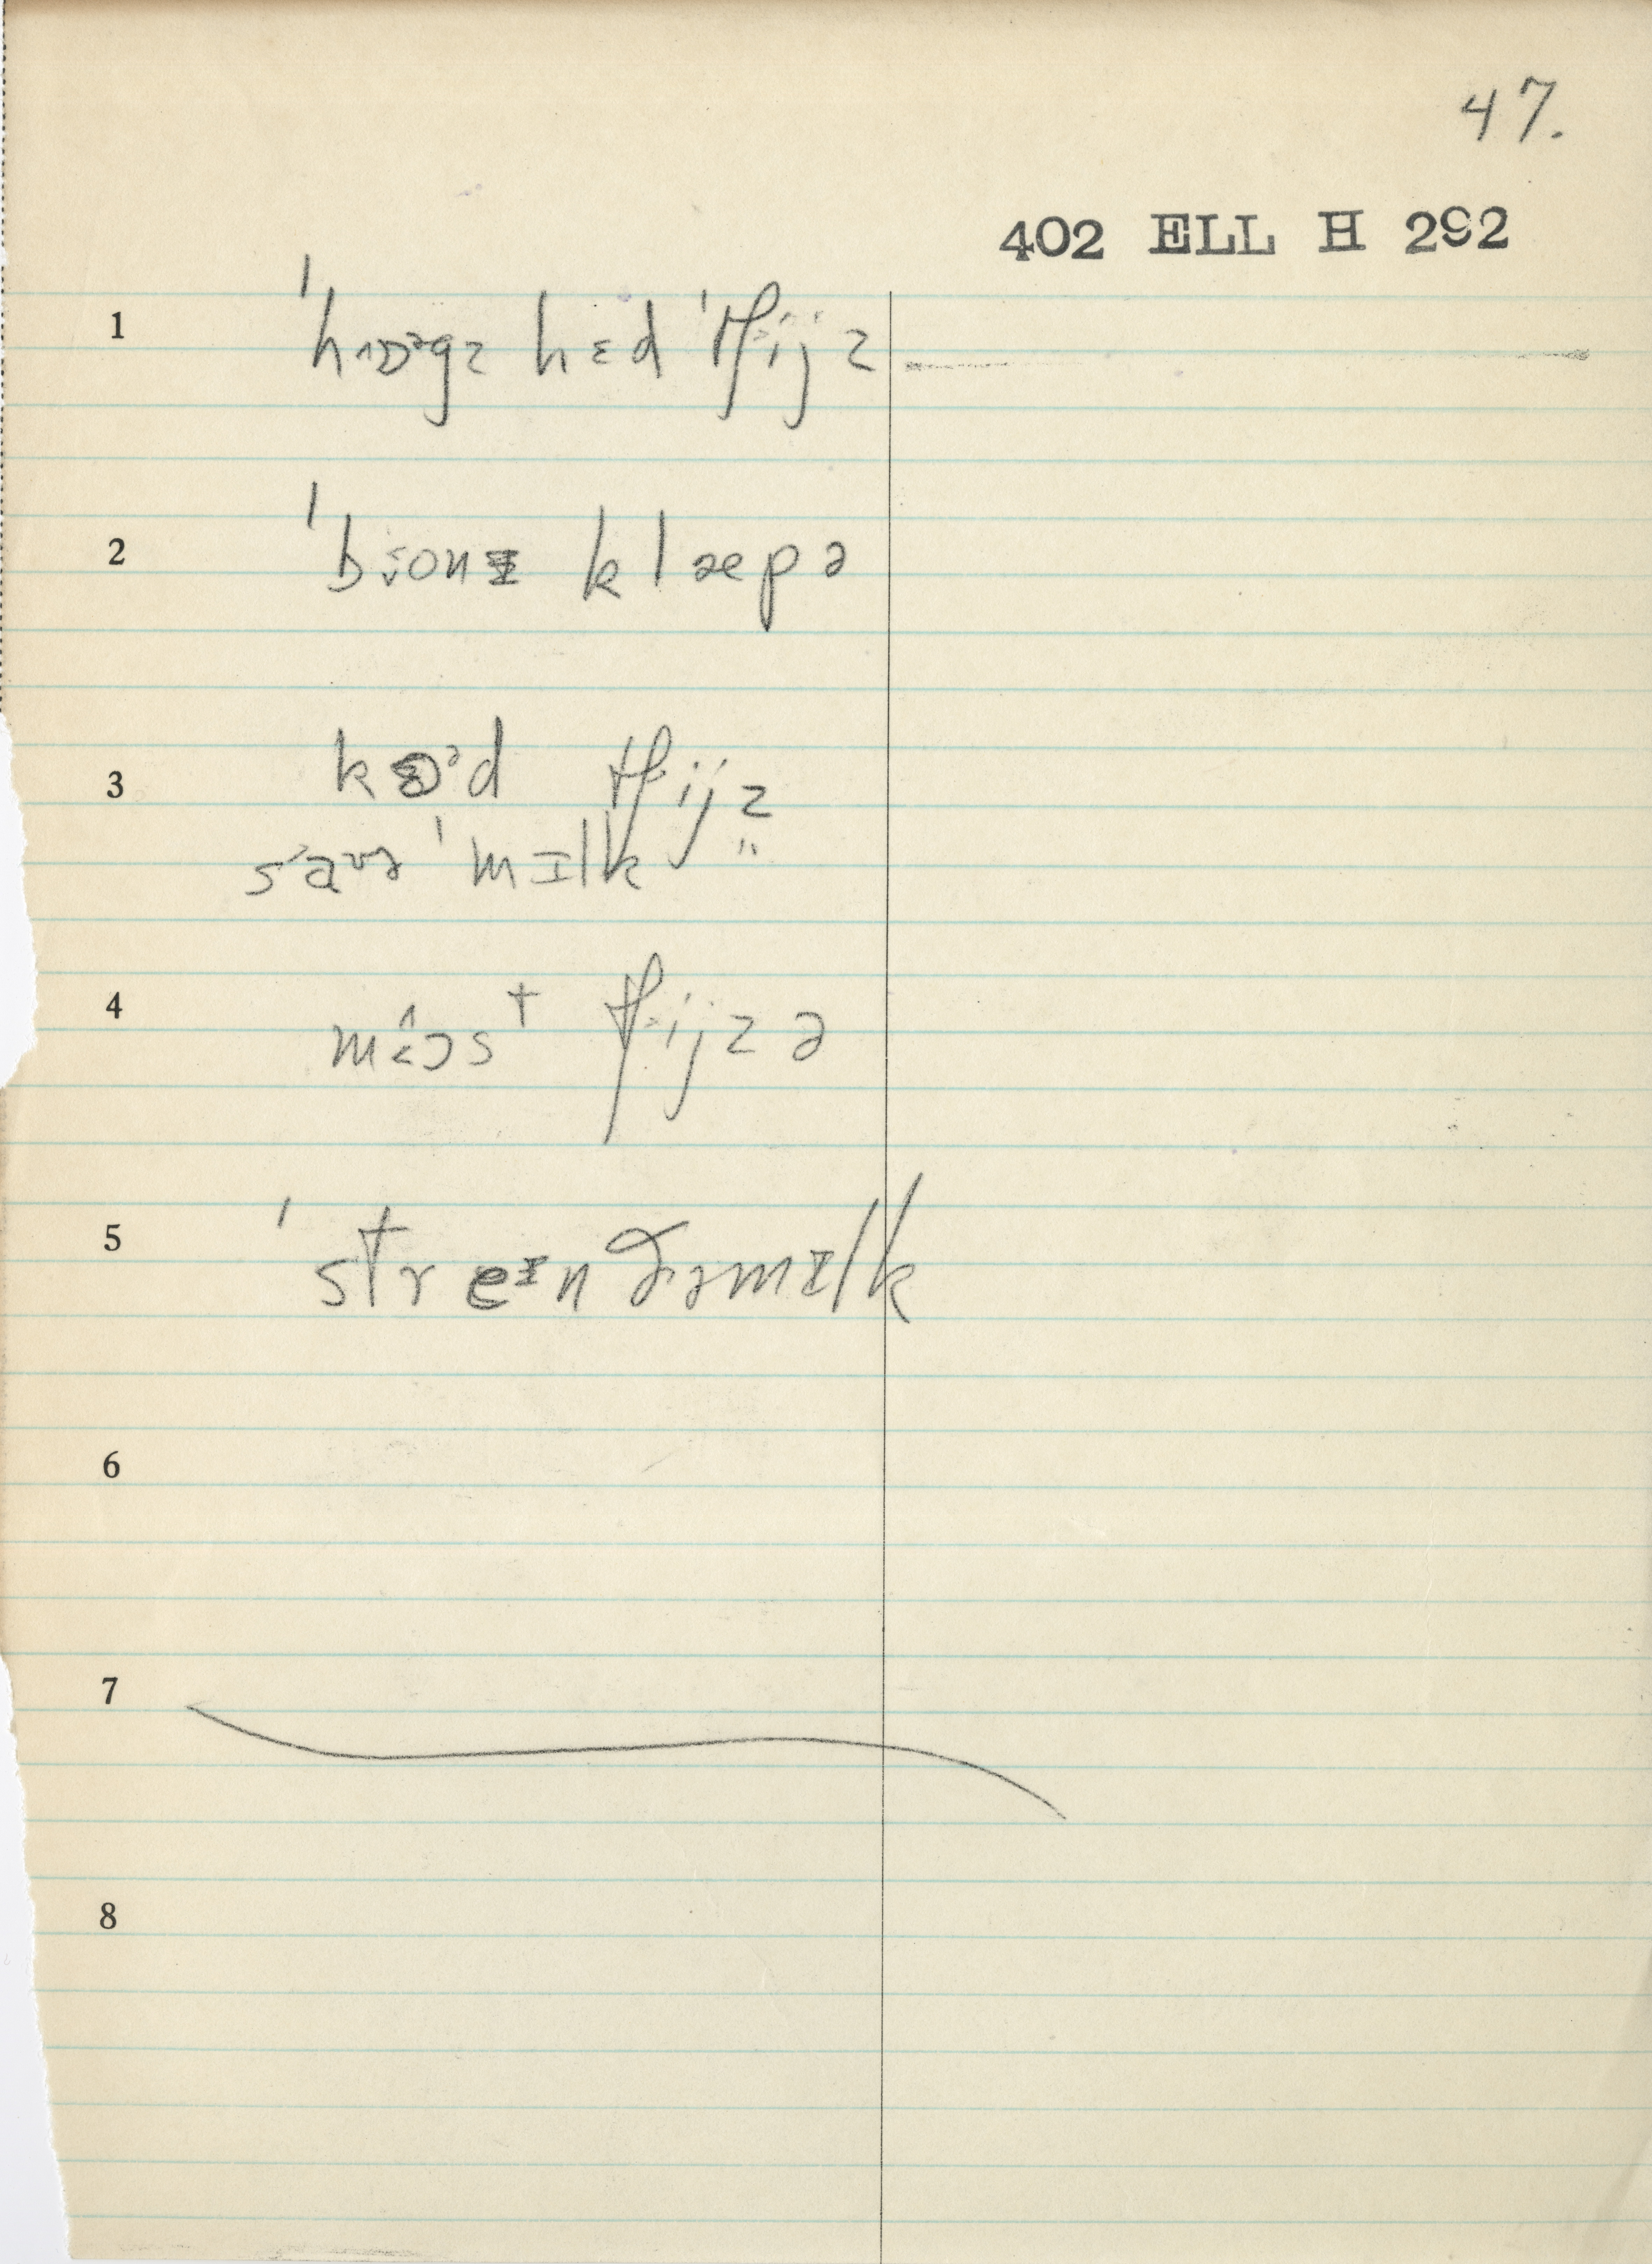 47.
402 ELL H 292
1 ˈhɒᵊgz hɛd ˈtʃijz
2 ˈbɔnɪ klæpə
3 kɜᵊd tʃijz
saʊə ˈmɪlk "
4 tʃijzə
5 ˈstreɪn ðə mɪlk
6
7
8